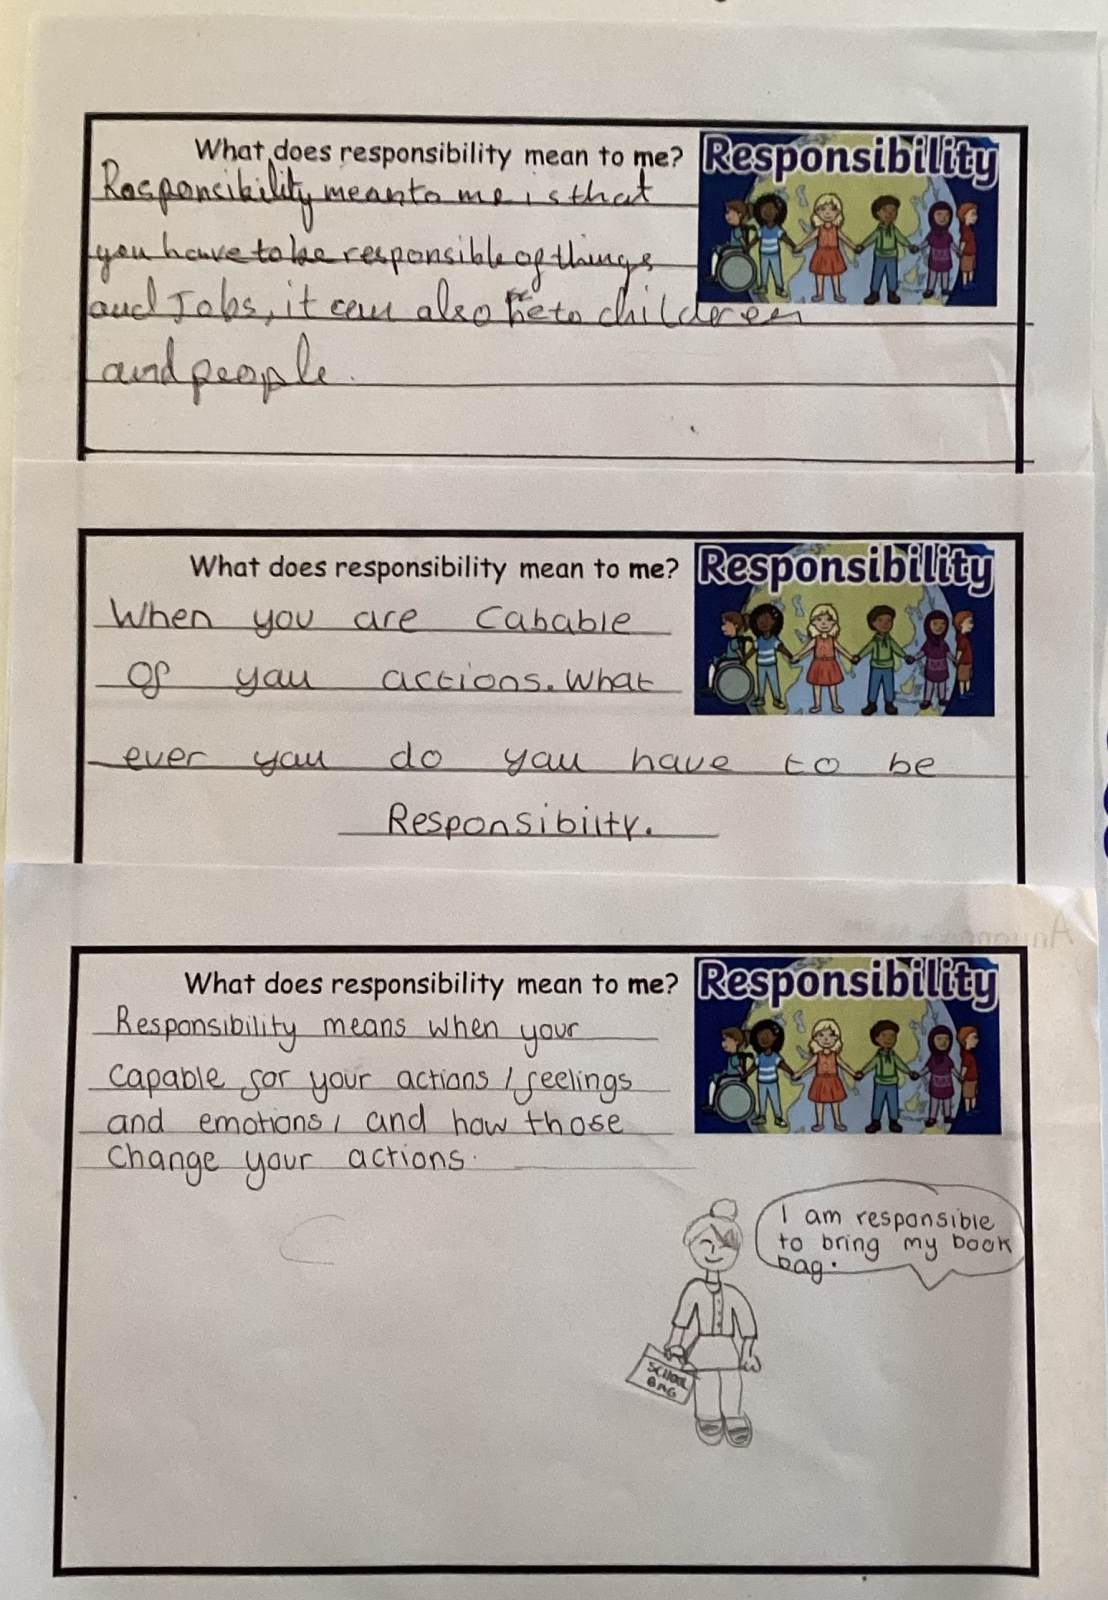 What does responsibility mean to me?
Responsibility
Responcibility means to me is that
you have to be responsible of things
and Jobs, it can also be to childeren
and people.
What does responsibility mean to me?
Responsibility
When you are Cabable
of you actions. What
ever you do you have to be
Responsibilty.
What does responsibility mean to me?
Responsibility
Responsibility means when your
capable for your actions, feelings
and emotions, and how those
change your actions.
I am responsible
to bring my book
bag.
SCHOOL
BAG